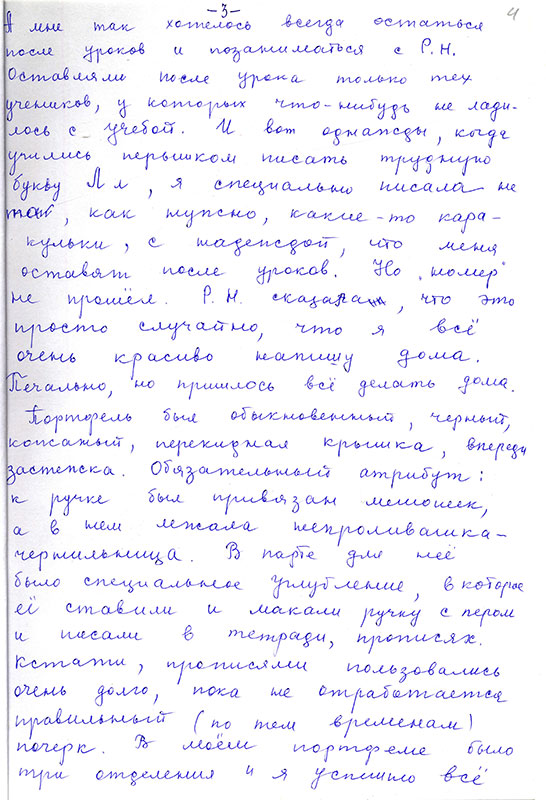 -3-
4
А мне так хотелось всегда остаться
после уроков и позаниматься с Р.Н.
Оставляли после урока только тех
учеников, у которых что-нибудь не лади-
лось с учебой. И вот однажды, когда
учились перышком писать трудную
букву Лл, я специально писала не
так, как нужно, какие-то кара-
кульки, с надеждой, что меня
оставят после уроков. Но „номер"
не прошёл. Р.Н. сказала, что это
просто случайно, что я всё
очень красиво напишу дома.
Печально, но пришлось всё делать дома.
Портфель был обыкновенный, черный,
кожаный, перекидная крышка, впереди
застежка. Обязательный атрибут:
к ручке был привязан мешочек,
а в нем лежала непроливашка-
чернильница. В парте для неё
было специальное углубление, в которое
её ставили и макали ручку с пером
и писали в тетради, прописях.
Кстати, прописями пользовались
очень долго, пока не отработается
правильный (по тем временам)
почерк. В моём портфеле было
три отделения и я успешно всё